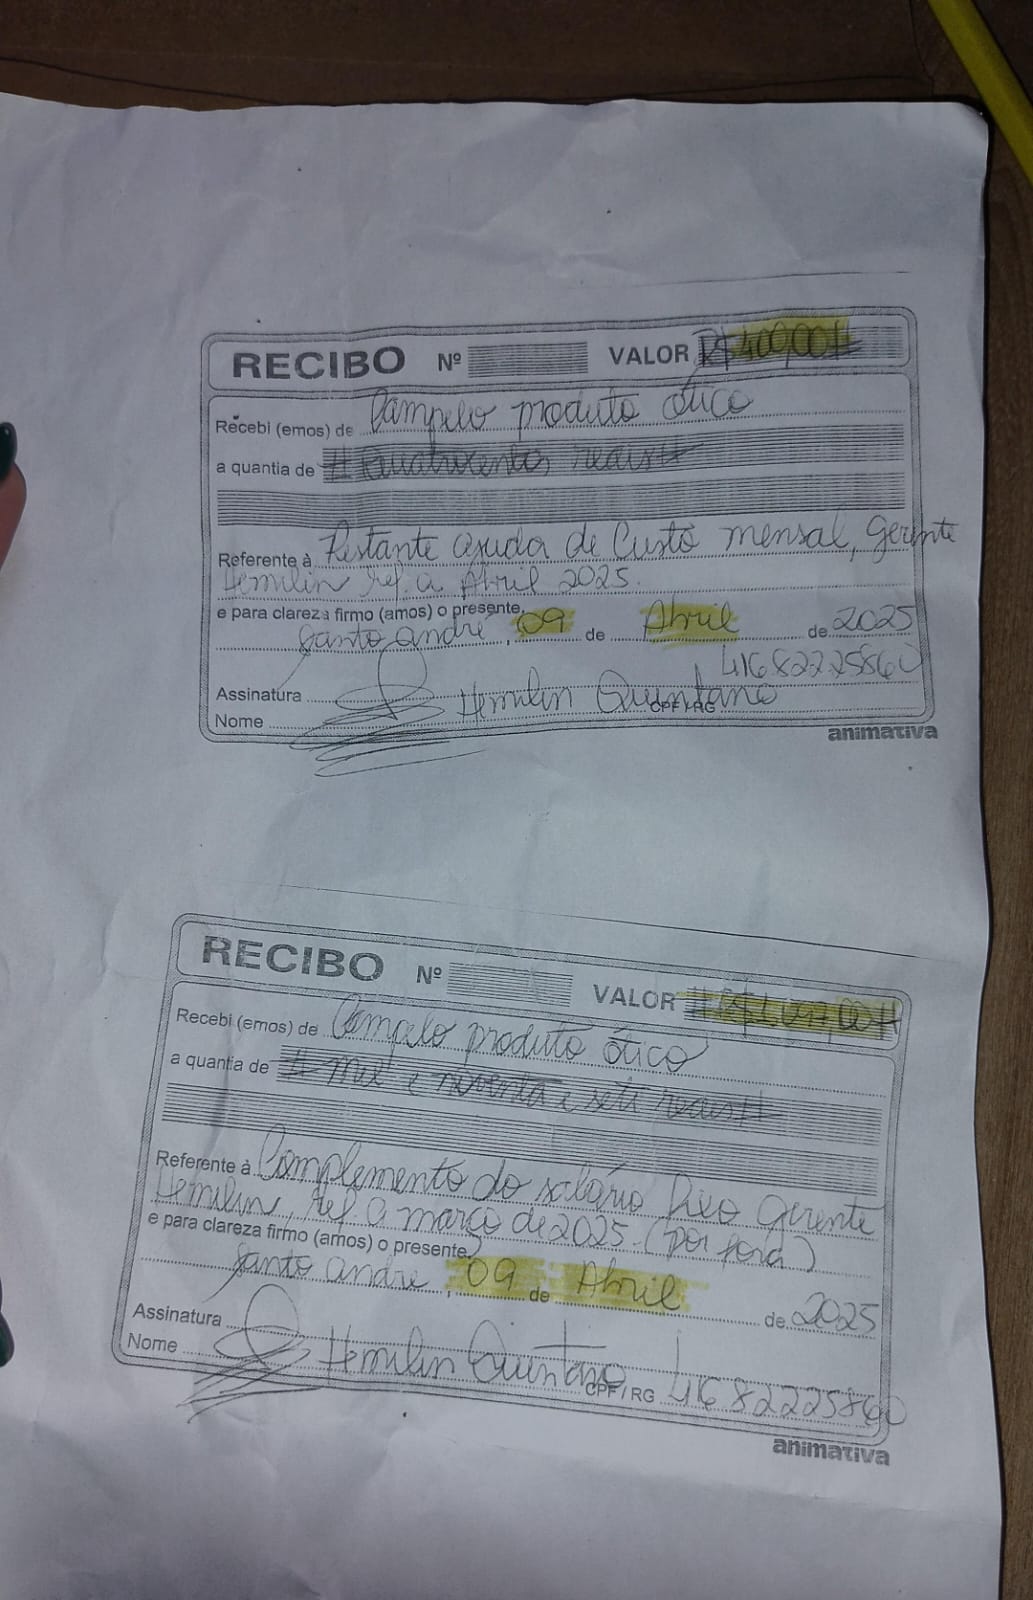 RECIBO Nº VALOR R$ 400,00#
Recebi (emos) de Campelo produto ótico
a quantia de # Quatrocentos reais #
Referente à Restante ajuda de Custo mensal, gerente
Hemilin ref. a Abril 2025.
e para clareza firmo (amos) o presente,
Santo andré, 09 de Abril de 2025
41682225860
Assinatura Hemilin Quintano
Nome CPF/RG
animativa
RECIBO Nº VALOR # R$ 1.097,00 #
Recebi (emos) de Campelo produto ótico
a quantia de # mil e noventa e sete reais #
Referente à Complemento do salário gerente
Hemilin, ref. a março de 2025. (por fora)
e para clareza firmo (amos) o presente,
Santo andré, 09 de Abril de 2025
Assinatura Hemilin Quintano
Nome CPF/RG 41682225860
animativa